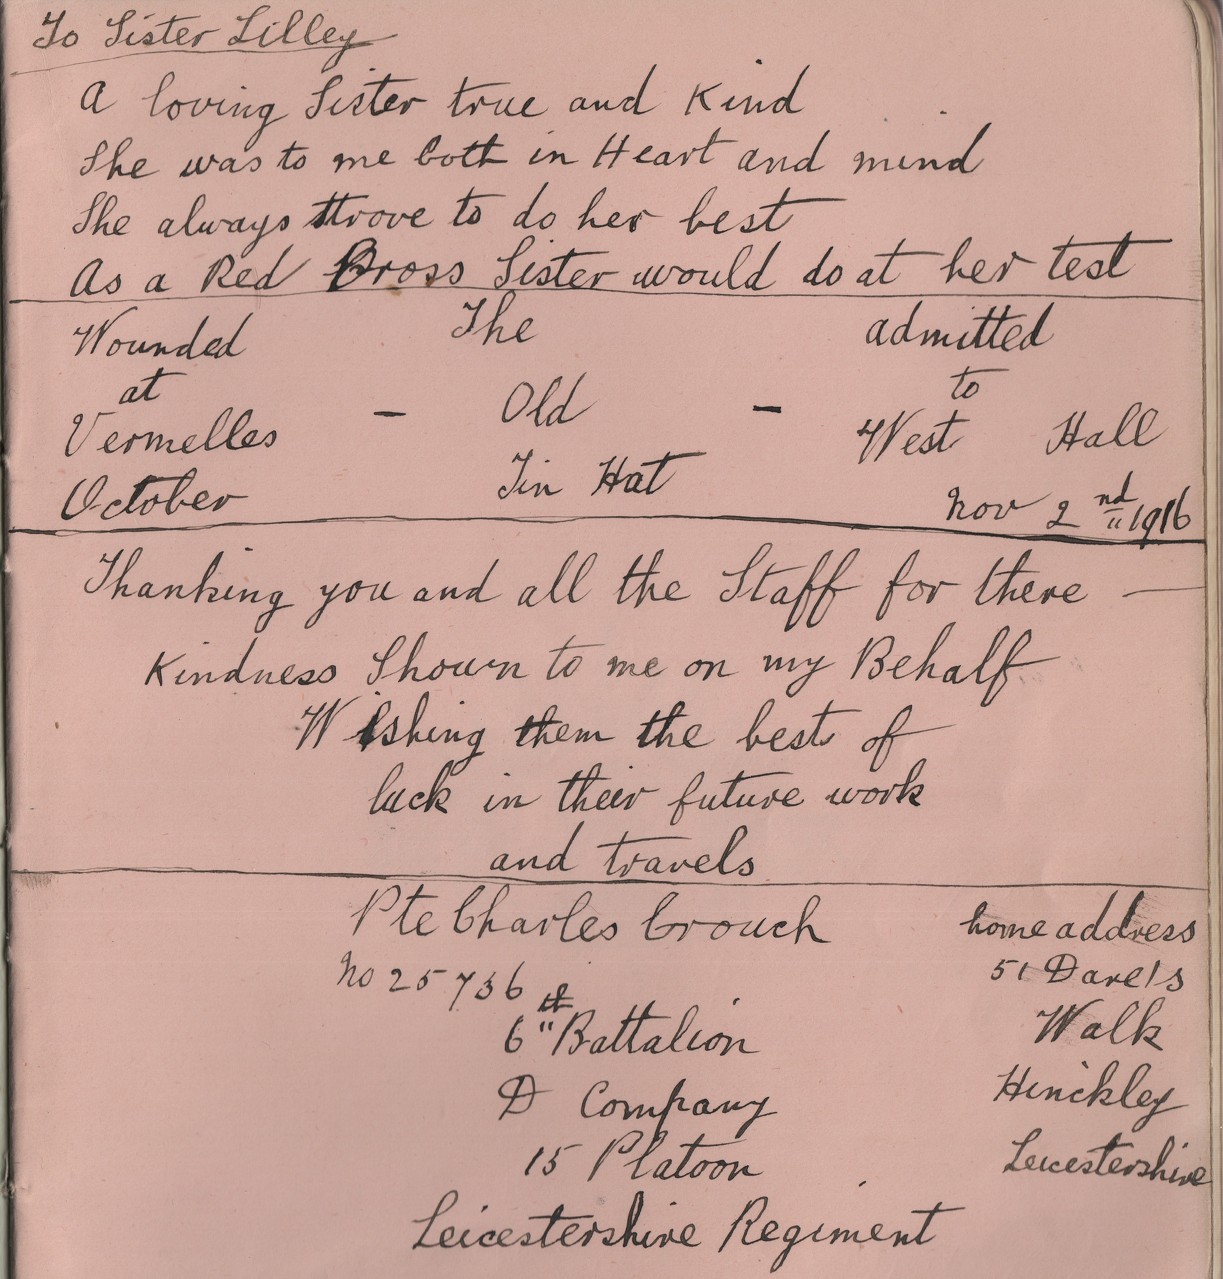 To Sister Lilley
A loving Sister true and Kind
She was to me both in Heart and mind
She always strove to do her best
As a Red Cross Sister would do at her test
Wounded
at
Vermelles
October
-
The
Old
Tin Hat
-
admitted
to
West Hall
Nov 2nd 1916
Thanking you and all the Staff for there —
Kindness Shown to me on my Behalf
Wishing them the best of
luck in their future work
and travels
Pte Charles Crouch
No 25736
6th Battalion
D Company
15 Platoon
Leicestershire Regiment
home address
51 Davel's
Walk
Hinckley
Leicestershire